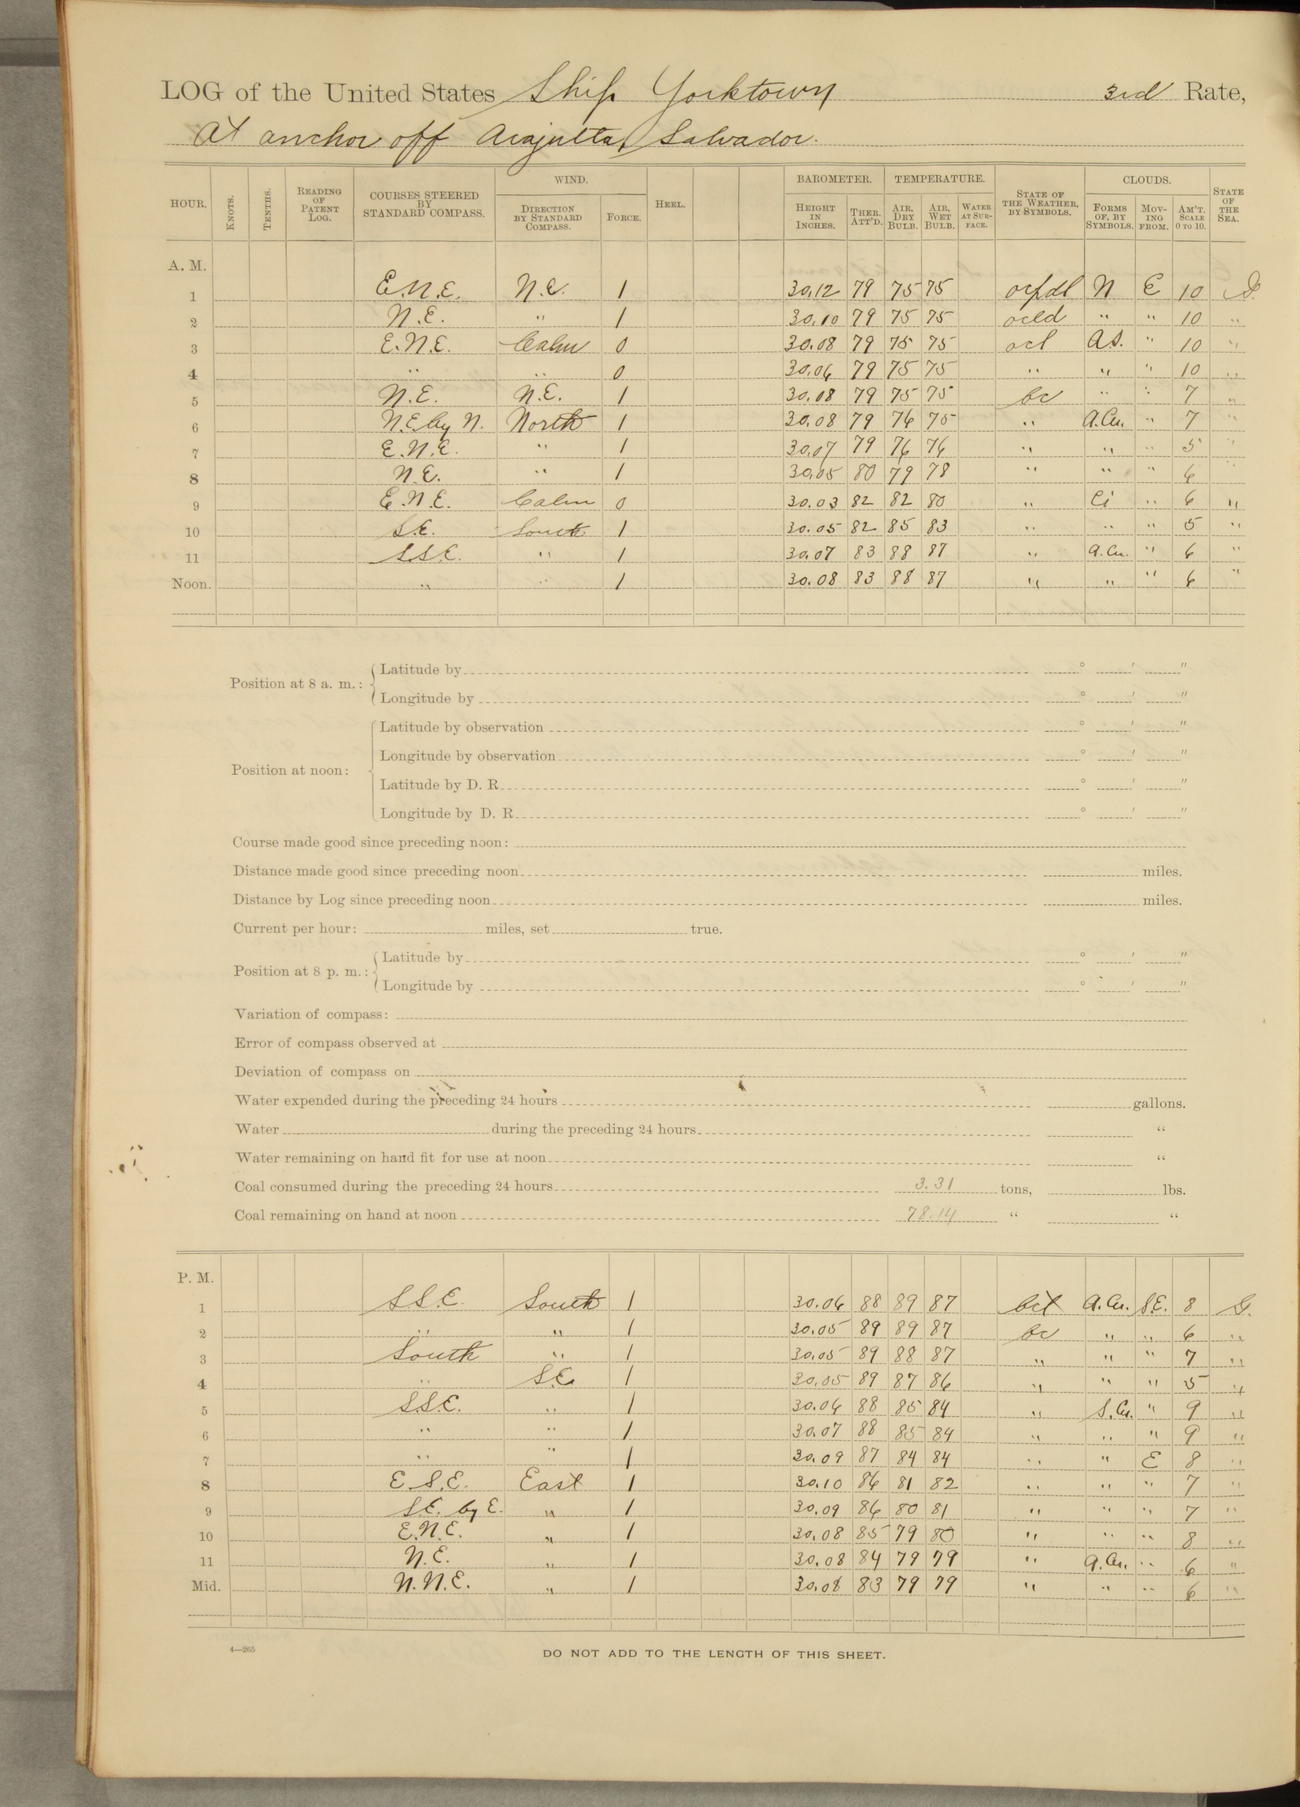 LOG of the United States Ship Yorktown 3rd Rate,
At anchor off Acajutla, Salvador.
HOUR. KNOTS. TENTHS. READING OF PATENT LOG. COURSES STEERED BY STANDARD COMPASS. WIND. DIRECTION BY STANDARD COMPASS. FORCE. HEEL. BAROMETER. HEIGHT IN INCHES. THER. ATT'D. TEMPERATURE. AIR, DRY BULB. AIR, WET BULB. WATER AT SURFACE. STATE OF THE WEATHER, BY SYMBOLS. CLOUDS. FORMS OF, BY SYMBOLS. MOVING FROM. AM'T, SCALE 0 TO 10. STATE OF THE SEA.
A. M.
1 E.N.E. N.E. 1 30.12 79 75 75 N E 10 S.
2 N.E. " 1 30.10 79 75 75 ocld " " 10 "
3 E.N.E. Calm 0 30.08 79 75 75 ocl A.S. " 10 "
4 " " 0 30.06 79 75 75 " " " 10 "
5 N.E. N.E. 1 30.08 79 75 75 bc " " 7 "
6 N.E. by N. North 1 30.08 79 76 75 " A.Cu. " 7 "
7 E.N.E. " 1 30.07 79 76 76 " " " 5 "
8 N.E. " 1 30.05 80 79 78 " " " 6 "
9 E.N.E. Calm 0 30.03 82 82 80 " Ci " 6 "
10 S.E. South 1 30.05 82 85 83 " " " 5 "
11 S.S.E. " 1 30.07 83 88 87 " A.Cu. " 6 "
Noon. " " 1 30.08 83 88 87 " " " 6 "
Position at 8 a. m.: Latitude by ° ' "
Longitude by ° ' "
Position at noon: Latitude by observation ° ' "
Longitude by observation ° ' "
Latitude by D. R. ° ' "
Longitude by D. R. ° ' "
Course made good since preceding noon:
Distance made good since preceding noon miles.
Distance by Log since preceding noon miles.
Current per hour: miles, set true.
Position at 8 p. m.: Latitude by ° ' "
Longitude by ° ' "
Variation of compass:
Error of compass observed at
Deviation of compass on
Water expended during the preceding 24 hours gallons.
Water during the preceding 24 hours "
Water remaining on hand fit for use at noon "
Coal consumed during the preceding 24 hours 3.31 tons, lbs.
Coal remaining on hand at noon 78.14 " "
P. M.
1 S.S.E. South 1 30.06 88 89 87 A.Cu. S.E. 8 S.
2 " " 1 30.05 89 89 87 bc " " 6 "
3 South " 1 30.05 89 88 87 " " " 7 "
4 " S.E. 1 30.05 89 87 86 " " " 5 "
5 S.S.E. " 1 30.06 88 85 84 " S.Cu. " 9 "
6 " " 1 30.07 88 85 84 " " " 9 "
7 " " 1 30.09 87 84 84 " " E 8 "
8 E.S.E. East 1 30.10 86 81 82 " " " 7 "
9 S.E. by E. " 1 30.09 86 80 81 " " " 7 "
10 E.N.E. " 1 30.08 85 79 80 " " " 8 "
11 N.E. " 1 30.08 84 79 79 " A.Cu. " 6 "
Mid. N.N.E. " 1 30.08 83 79 79 " " " 6 "
4—265 DO NOT ADD TO THE LENGTH OF THIS SHEET.